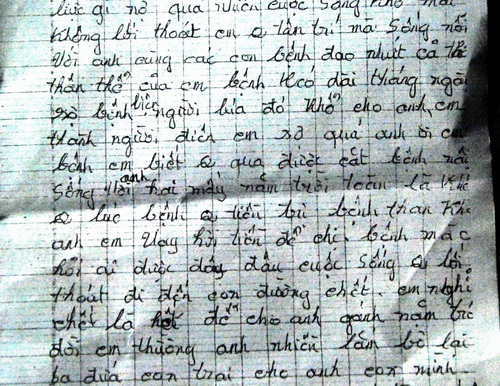 lực gì nở quá nhiều cuộc sống khổ mà
không lối thoát em o tân trí mà sống nổi
với anh cùng các con bệnh đao nhứt cả thể
thân thể của em bệnh kéo dài tháng ngày
sợ bệnh liên người lúa đó khổ cho anh, em
thành người điên em sợ quá anh ơi em
bệnh em biết o qua được cắt bệnh nầy
sống với anh hai mấy năm trời toàn là
o lúc bệnh o tiền trị bệnh than
anh em Vay hỏi tiền để chị bệnh mà c
hỏi ai được đây đâu cuộc sống o lối
thoát đi đến con đường chết. em nghỉ
chết là hết để cho anh gánh nặng
đời em thương anh nhiều lắm bỏ lại
ba đứa con trai cho anh con mình